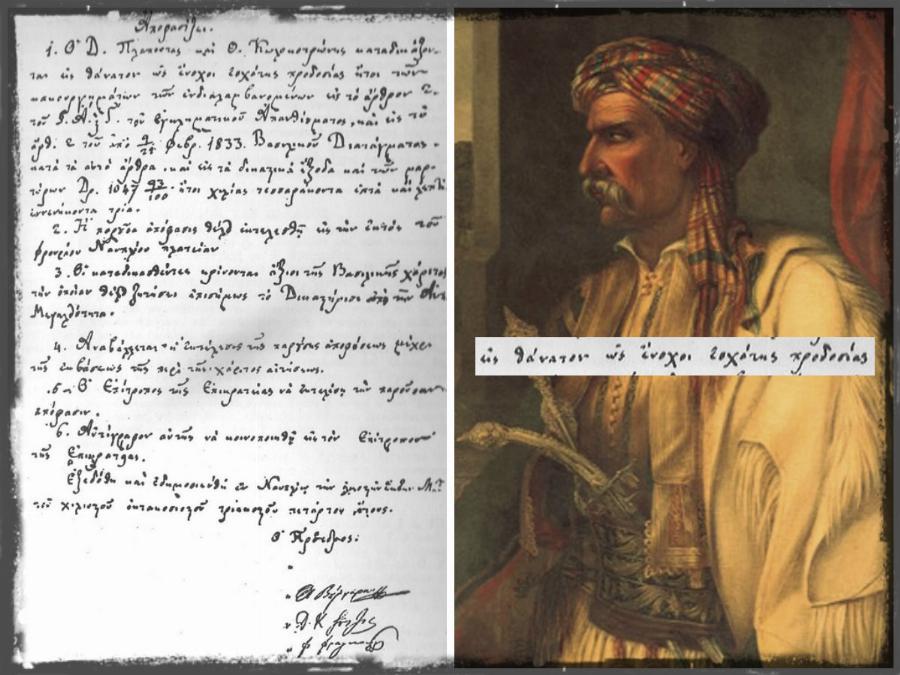 Ἀποφασίζει.
1. Ὁ Δ. Πλαπούτας καὶ Θ. Κολοκοτρώνης καταδικάζον-
ται εἰς θάνατον ὡς ἔνοχοι ἐσχάτης προδοσίας ἤτοι τῶν
κακουργημάτων τῶν ἐνδιαλαμβανομένων εἰς τὸ ἄρθρον 2.
τοῦ ἐγκληματικοῦ Ἀπανθίσματος, καὶ εἰς τὸ
ἄρθ. 2 τοῦ ἀπὸ 9/21 Φεβρ. 1833. Βασιλικοῦ Διατάγματος.
κατὰ τὰ αὐτὰ ἄρθρα, καὶ εἰς τὰ δικαστικὰ ἔξοδα καὶ τῶν μαρ-
τύρων Δρ. 1047 93/100 ἤτοι χιλίας τεσσαράκοντα ἑπτὰ καὶ λεπτὰ
ἐννενήκοντα τρία.
2. Ἡ παροῦσα ἀπόφασις θέλει ἐκτελεσθῇ εἰς τὴν ἐκτὸς τοῦ
φρουρίου Ναυπλίου πλατεῖαν
3. Οἱ καταδικασθέντες κρίνονται ἄξιοι τῆς Βασιλικῆς χάριτος
τὴν ὁποίαν θέλει ζητήσει ἐπισήμως τὸ Δικαστήριον ἀπὸ τὴν
Μεγαλειότητα.
4. Ἀναβάλλεται ἡ ἐκτέλεσις τῆς παρούσης ἀποφάσεως μέχρι
τῆς ἐκβάσεως τῆς περὶ τῆς χάριτος αἰτήσεως.
5. Ὁ Ἐπίτροπος τῆς Ἐπικρατείας νὰ ἐκτελέσῃ τὴν παροῦσαν
ἀπόφασιν.
6. Ἀντίγραφον αὐτῆς νὰ κοινοποιηθῇ εἰς τὸν Ἐπίτροπον
τῆς Ἐπικρατείας.
Ἐξεδόθη καὶ ἐδημοσιεύθη ἐν Ναυπλίῳ τὴν
τοῦ χιλιοστοῦ ὀκτακοσιοστοῦ τριακοστοῦ τετάρτου ἔτους.
Ὁ Πρόεδρος:
εἰς θάνατον ὡς ἔνοχοι ἐσχάτης προδοσίας